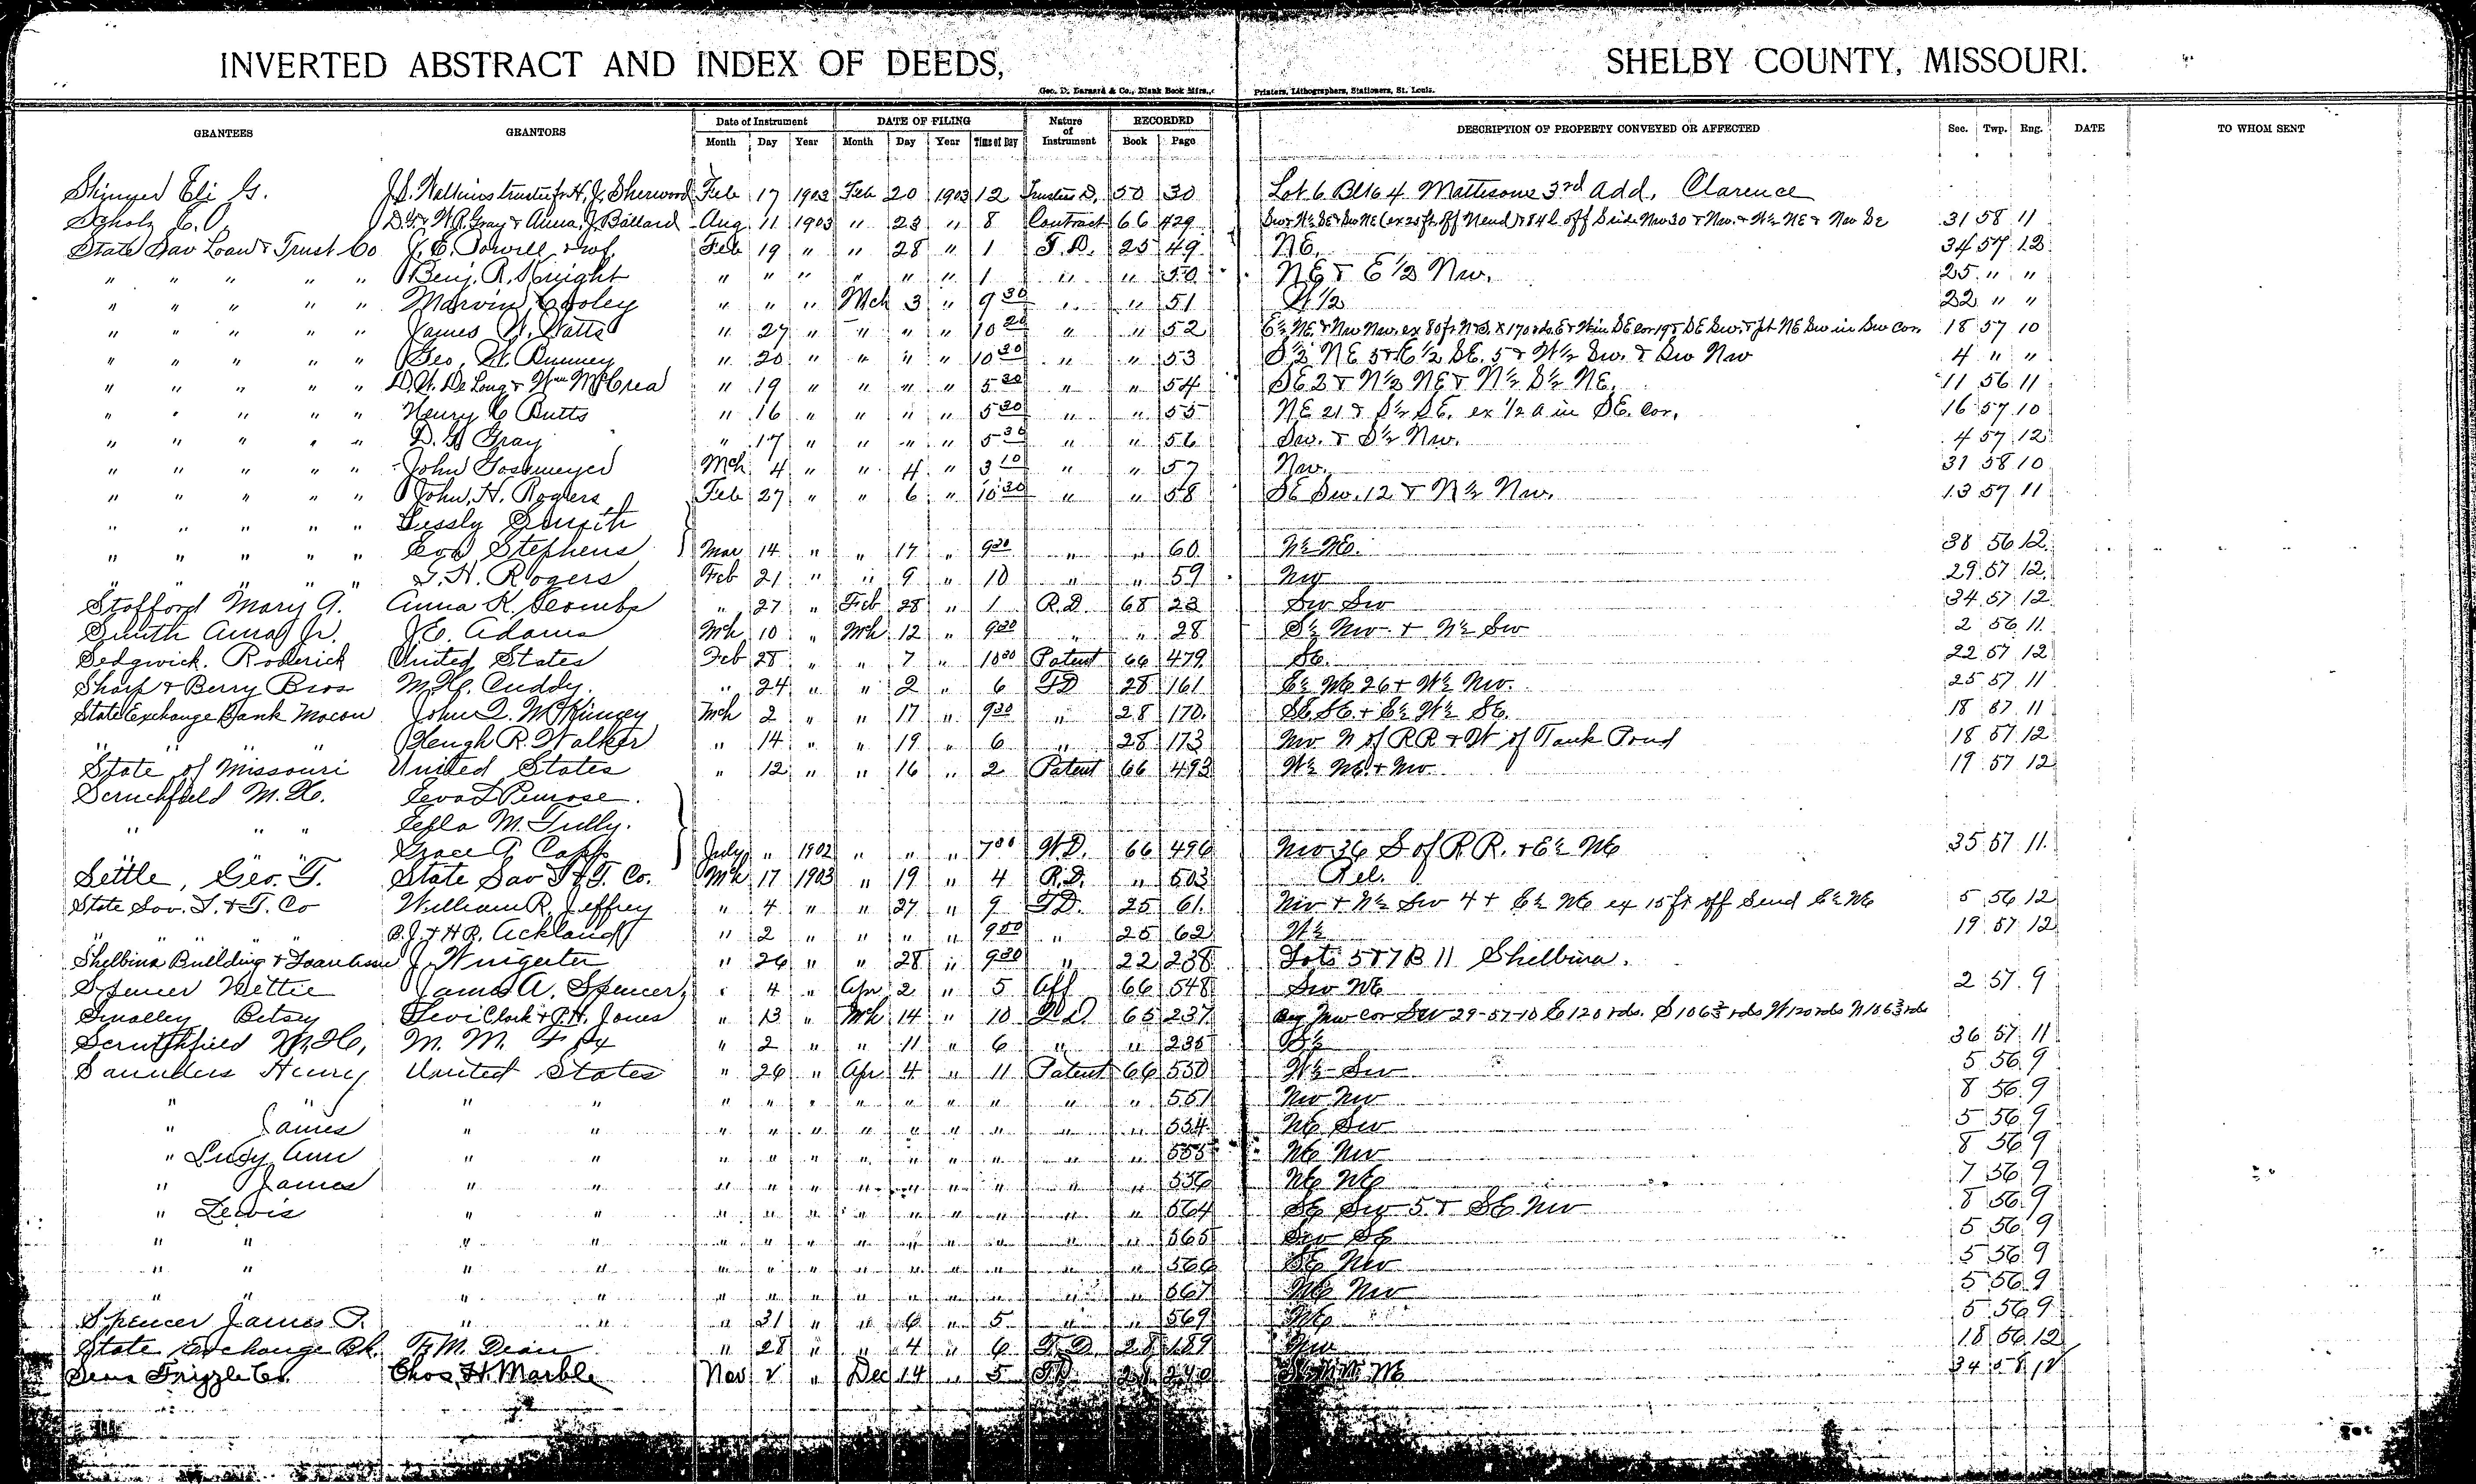 INVERTED ABSTRACT AND INDEX OF DEEDS, SHELBY COUNTY, MISSOURI.
Geo. D. Barnard & Co., Blank Book Mfrs., Printers, Lithographers, Stationers, St. Louis.
GRANTEES GRANTORS Date of Instrument DATE OF FILING Nature of Instrument RECORDED DESCRIPTION OF PROPERTY CONVEYED OR AFFECTED Sec. Twp. Rng. DATE TO WHOM SENT
Month Day Year Month Day Year Time of Day Book Page
Eli G. J.D. Watkins trustee for H.J. Sherwood Feb 17 1903 Feb 20 1903 12 Trustees D. 50 30 Lot 6 Blk 4 Mattesons 3rd Add, Clarence
Scholz E.O. D.G. & W.R. Gray & Anna J. Ballard Aug 11 1903 " 23 " 8 Contract 66 429 31 58 11
State Sav Loan & Trust Co J.E. Powell & wf. Feb 19 " " 28 " 1 T.D. 25 49 NE. 34 57 12
" " " " " Benj. R. Knight " " " " " " 1 " " 50 NE & E 1/2 Nw. 25 " "
" " " " " Marvin Cooley " " " Mch 3 " 9 30 " " 51 W 1/2 22 " "
" " " " " James W. Watts " 27 " " " " 10 20 " " 52 18 57 10
" " " " " Geo. W. " 20 " " " " 10 30 " " 53 S 1/2 NE 5 & E 1/2 SE. 5 & W 1/2 Sw. & Sw Nw 4 " "
" " " " " D.W. De Long & Wm McCrea " 19 " " " " 5 30 " " 54 SE 2 & N 1/2 NE & N 1/2 S 1/2 NE. 11 56 11
" " " " " Henry C Butts " 16 " " " " 5 30 " " 55 NE 21 & S 1/2 SE. ex 1/2 a in SE. Cor. 16 57 10
" " " " " D.G. Gray " 17 " " " " 5 30 " " 56 Sw. & S 1/2 Nw. 4 57 12
" " " " " John Mch 4 " " 4 " 3 10 " " 57 Nw. 31 58 10
" " " " " John H. Rogers Feb 27 " " 6 " 10 30 " " 58 SE Sw. 12 & N 1/2 Nw. 13 57 11
" " " " " Smith
" " " " " Eva Stephens Mar 14 " " 17 " 9 30 " " 60 N 1/2 NE. 56 12
" " " " " G.H. Rogers Feb 21 " " 9 " 10 " " 59 Nw 29 57 12
Stofford Mary A. Anna K. " 27 " Feb 28 " 1 R.D. 68 23 Sw Sw 34 57 12
Smith Jr. J.E. Adams Mch 10 " Mch 12 " 9 30 " " 28 S 1/2 Nw & N 1/2 Sw 2 56 11
Sedgwick. Roderick United States Feb 28 " " 7 " 10 30 Patent 66 479 SE. 22 57 12
Sharp & Berry Bros M.H. Cuddy. " 24 " " 2 " 6 TD 28 161 E 1/2 NE 26 & W 1/2 Nw. 25 57 11
State Exchange Bank Macon John Q. McKinney Mch 2 " " 17 " 9 30 " 28 170 SE SE. & E 1/2 W 1/2 SE. 18 57 11
" " " Heugh R. Walker " 14 " " 19 " 6 " 28 173 Nw N of RR & W of Tank Pond 18 57 12
State of Missouri United States " 12 " " 16 " 2 Patent 66 493 W 1/2 NE. & Nw. 19 57 12
Scruchfield M.H. Leva D Penrose.
" " " M. Tully.
" " " Grace A Capp July " 1902 " " " 7 00 W.D. 66 496 Nw 36 S of R R. & E 1/2 NE 35 57 11
Settle, Geo. T. State Sav L & T. Co. Mch 17 1903 " 19 " 4 R.D. " 503 Rel.
State Sav. L. & T. Co William R. Jeffrey " 4 " " 27 " 9 TD. 25 61 Nw & N 1/2 Sw 4 & E 1/2 NE ex 15 ft off S end E 1/2 NE 5 56 12
" " " " B.J. & H.R. Ackland " 2 " " " " 9 00 " 25 62 W 1/2 19 57 12
Shelbina Building & Loan Assn J. Wingerter " 26 " " 28 " 9 30 " 22 238 Lots 5 & 7 B 11 Shelbina.
Spencer Nettie James A. Spencer " 4 " Apr 2 " 5 Aff 66 548 Sw NE 2 57 9
Smalley Betsy Levi Clark & P.H. Jones " 13 " Mh 14 " 10 Q.D. 65 237 Beg Nw cor SW 29-57-10 E 120 rds. S 106 2/3 rds W 120 rds N 106 2/3 rds
Scruthfield M.H. M. M. " 2 " " 11 " 6 " " 235 36 57 11
Saunders Henry United States " 26 " Apr 4 " 11 Patent 66 550 W 1/2 Sw 5 56 9
" " " " " " " " " " " " " 551 Nw Nw 8 56 9
" James " " " " " " " " " " " 554 NE Sw 5 56 9
" Lucy Ann " " " " " " " " " " " 555 NE Nw 8 56 9
" James " " " " " " " " " " " 556 NE NE 7 56 9
" Lewis " " " " " " " " " " " 564 SE Sw 5 & SE Nw 8 56 9
" " " " " " " " " " " " " 565 Sw SE 5 56 9
" " " " " " " " " " " " " 566 SE Nw 5 56 9
" " " " " " " " " " " " " 567 NE Nw 5 56 9
Spencer James P. " " " 31 " " 6 " 5 " " 569 NE 5 56 9
State Exchange Bk. F.M. Dean " 28 " " 4 " 6 T.D. 28 189 Nw 18 56 12
Sens Frizzle Co. Chas. H. Marble Nov 2 " Dec 14 " 5 T.D. 34 58 12